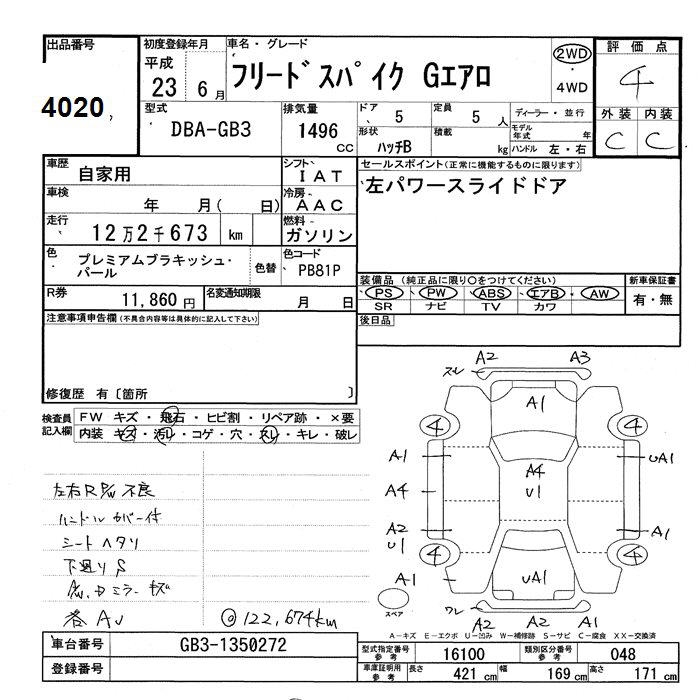 出品番号
4020
初度登録年月
平成
23 6月
車名・グレード
フリードスパイク Gエアロ
2WD
・
4WD
評価点
4
外装 内装
C C
型式
DBA-GB3
排気量
1496 CC
ドア 5
定員 5 人
ディーラー・並行
形状 ハッチB
積載 kg
モデル年式 年
ハンドル 左・右
車歴
自家用
シフト
IAT
セールスポイント(正常に機能するものに限ります)
左パワースライドドア
車検
年 月( 日)
冷房
AAC
走行
12万2千673 km
燃料
ガソリン
色
プレミアムブラキッシュ・
パール
色替
色コード
PB81P
装備品 (純正品に限り○をつけてください)
PS ・ PW ・ ABS ・ エアB ・ AW
SR ナビ TV カワ
新車保証書
有・無
R券
11,860円
名変通知期限
月 日
後日品
注意事項申告欄(不具合内容等は具体的に記入して下さい)
修復歴 有〔箇所 〕
検査員
記入欄
FW キズ・飛石・ヒビ割・リペア跡・×要
内装 キズ・汚レ・コゲ・穴・スレ・キレ・破レ
左右R P/W 不良
ハンドルカバー付
シートヘタリ
下廻りS
ドミラーキズ
各AU
◎122,674km
スレ A2 A3
A1
4 4
A1 UA1
A4
A4
U1
A2
U1
A1
4 4
A1
UA1
スペア
ワレ A2 A2 A1
A-キズ E-エクボ U-凹み W-補修跡 S-サビ C-腐食 XX-交換済
車台番号
GB3-1350272
登録番号
型式指定番号
参考
16100
類別区分番号
参考
048
車庫証明用
参考
長さ 421 cm
幅 169 cm
高さ 171 cm